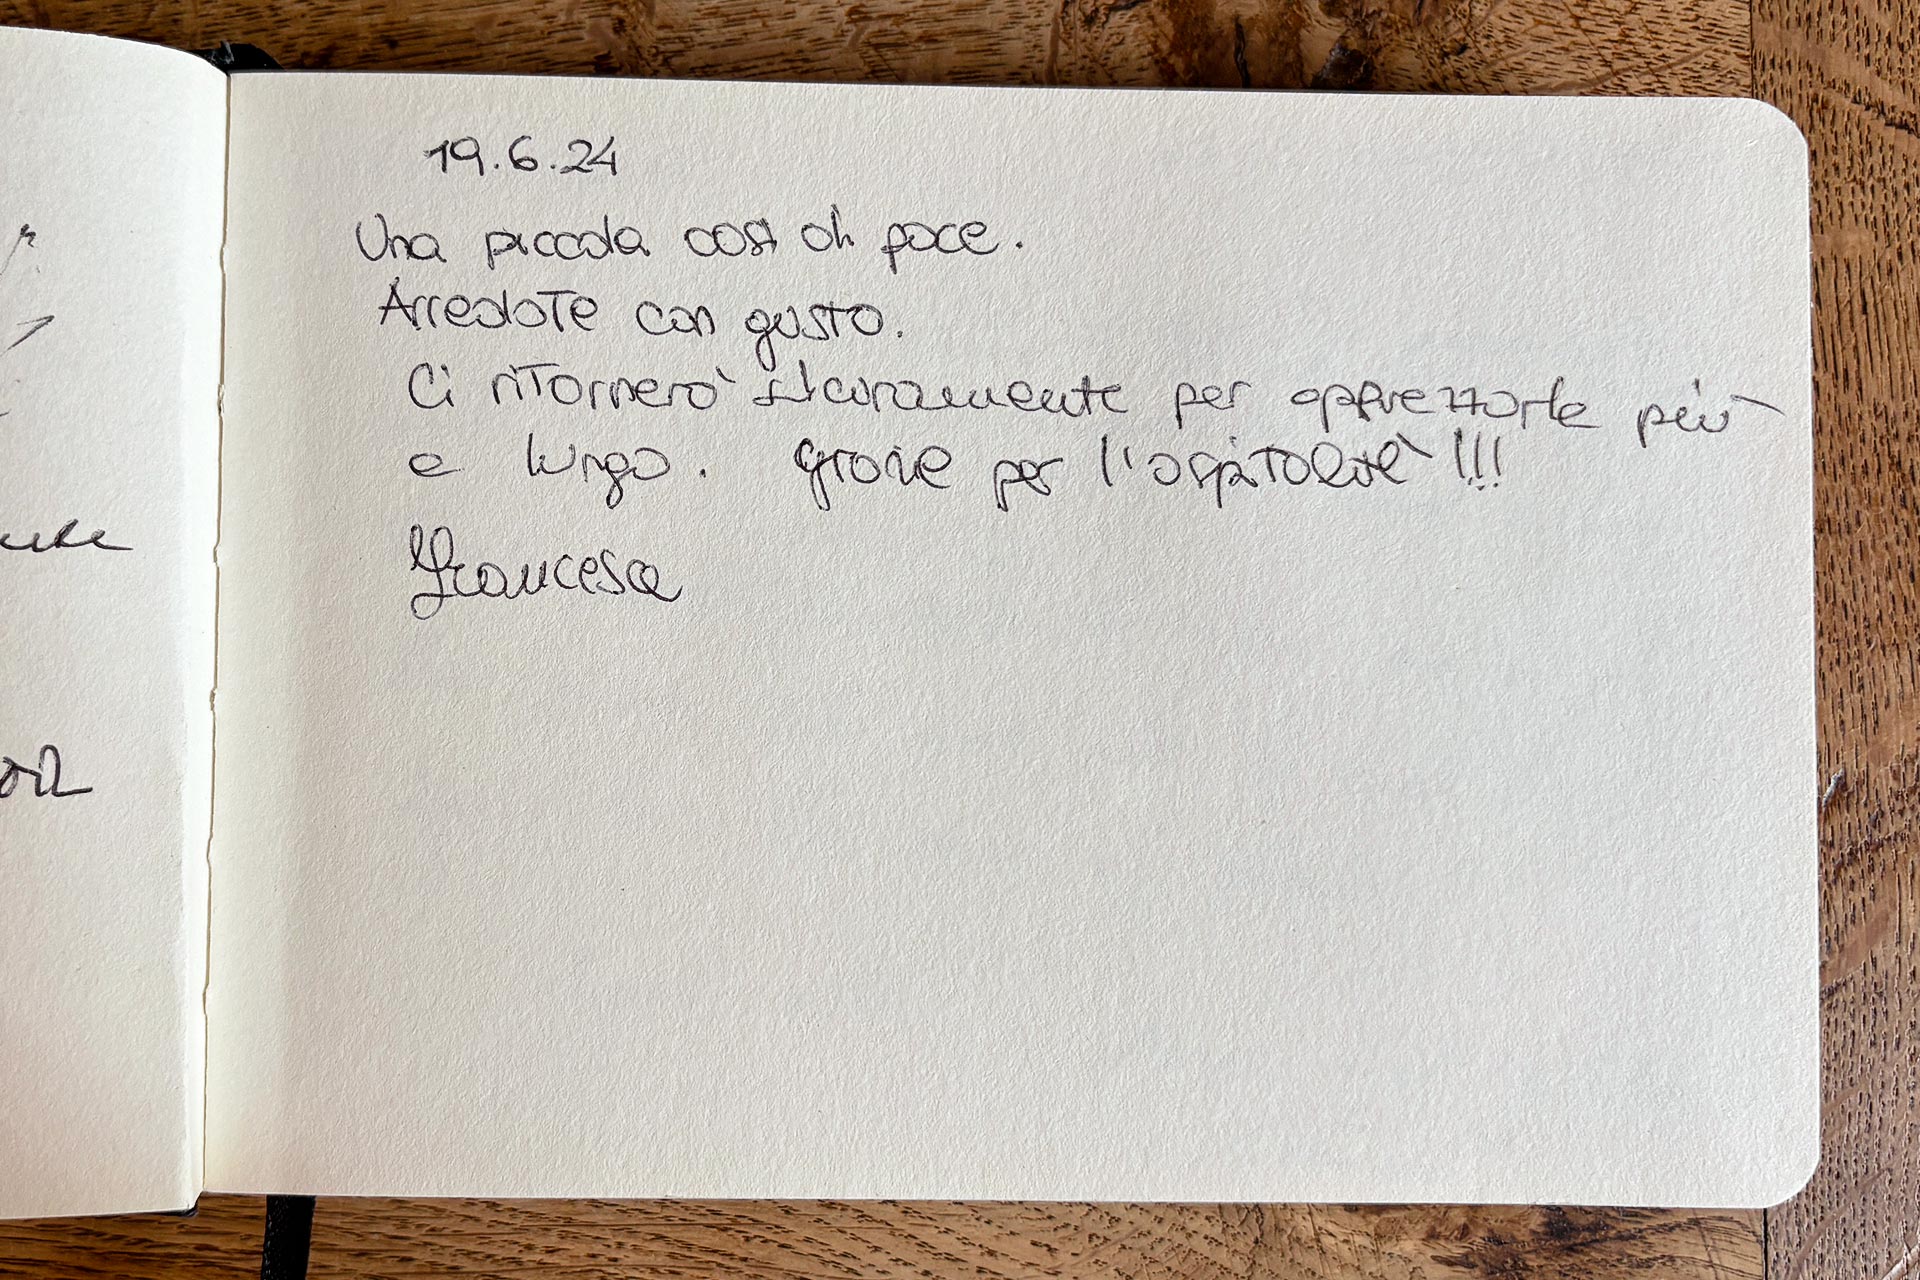 19.6.24
Una piccola oasi di pace.
Arredate con gusto.
Ci ritornerò sicuramente per apprezzarla più
a lungo. Grazie per l'ospitalità!!!
Francesca